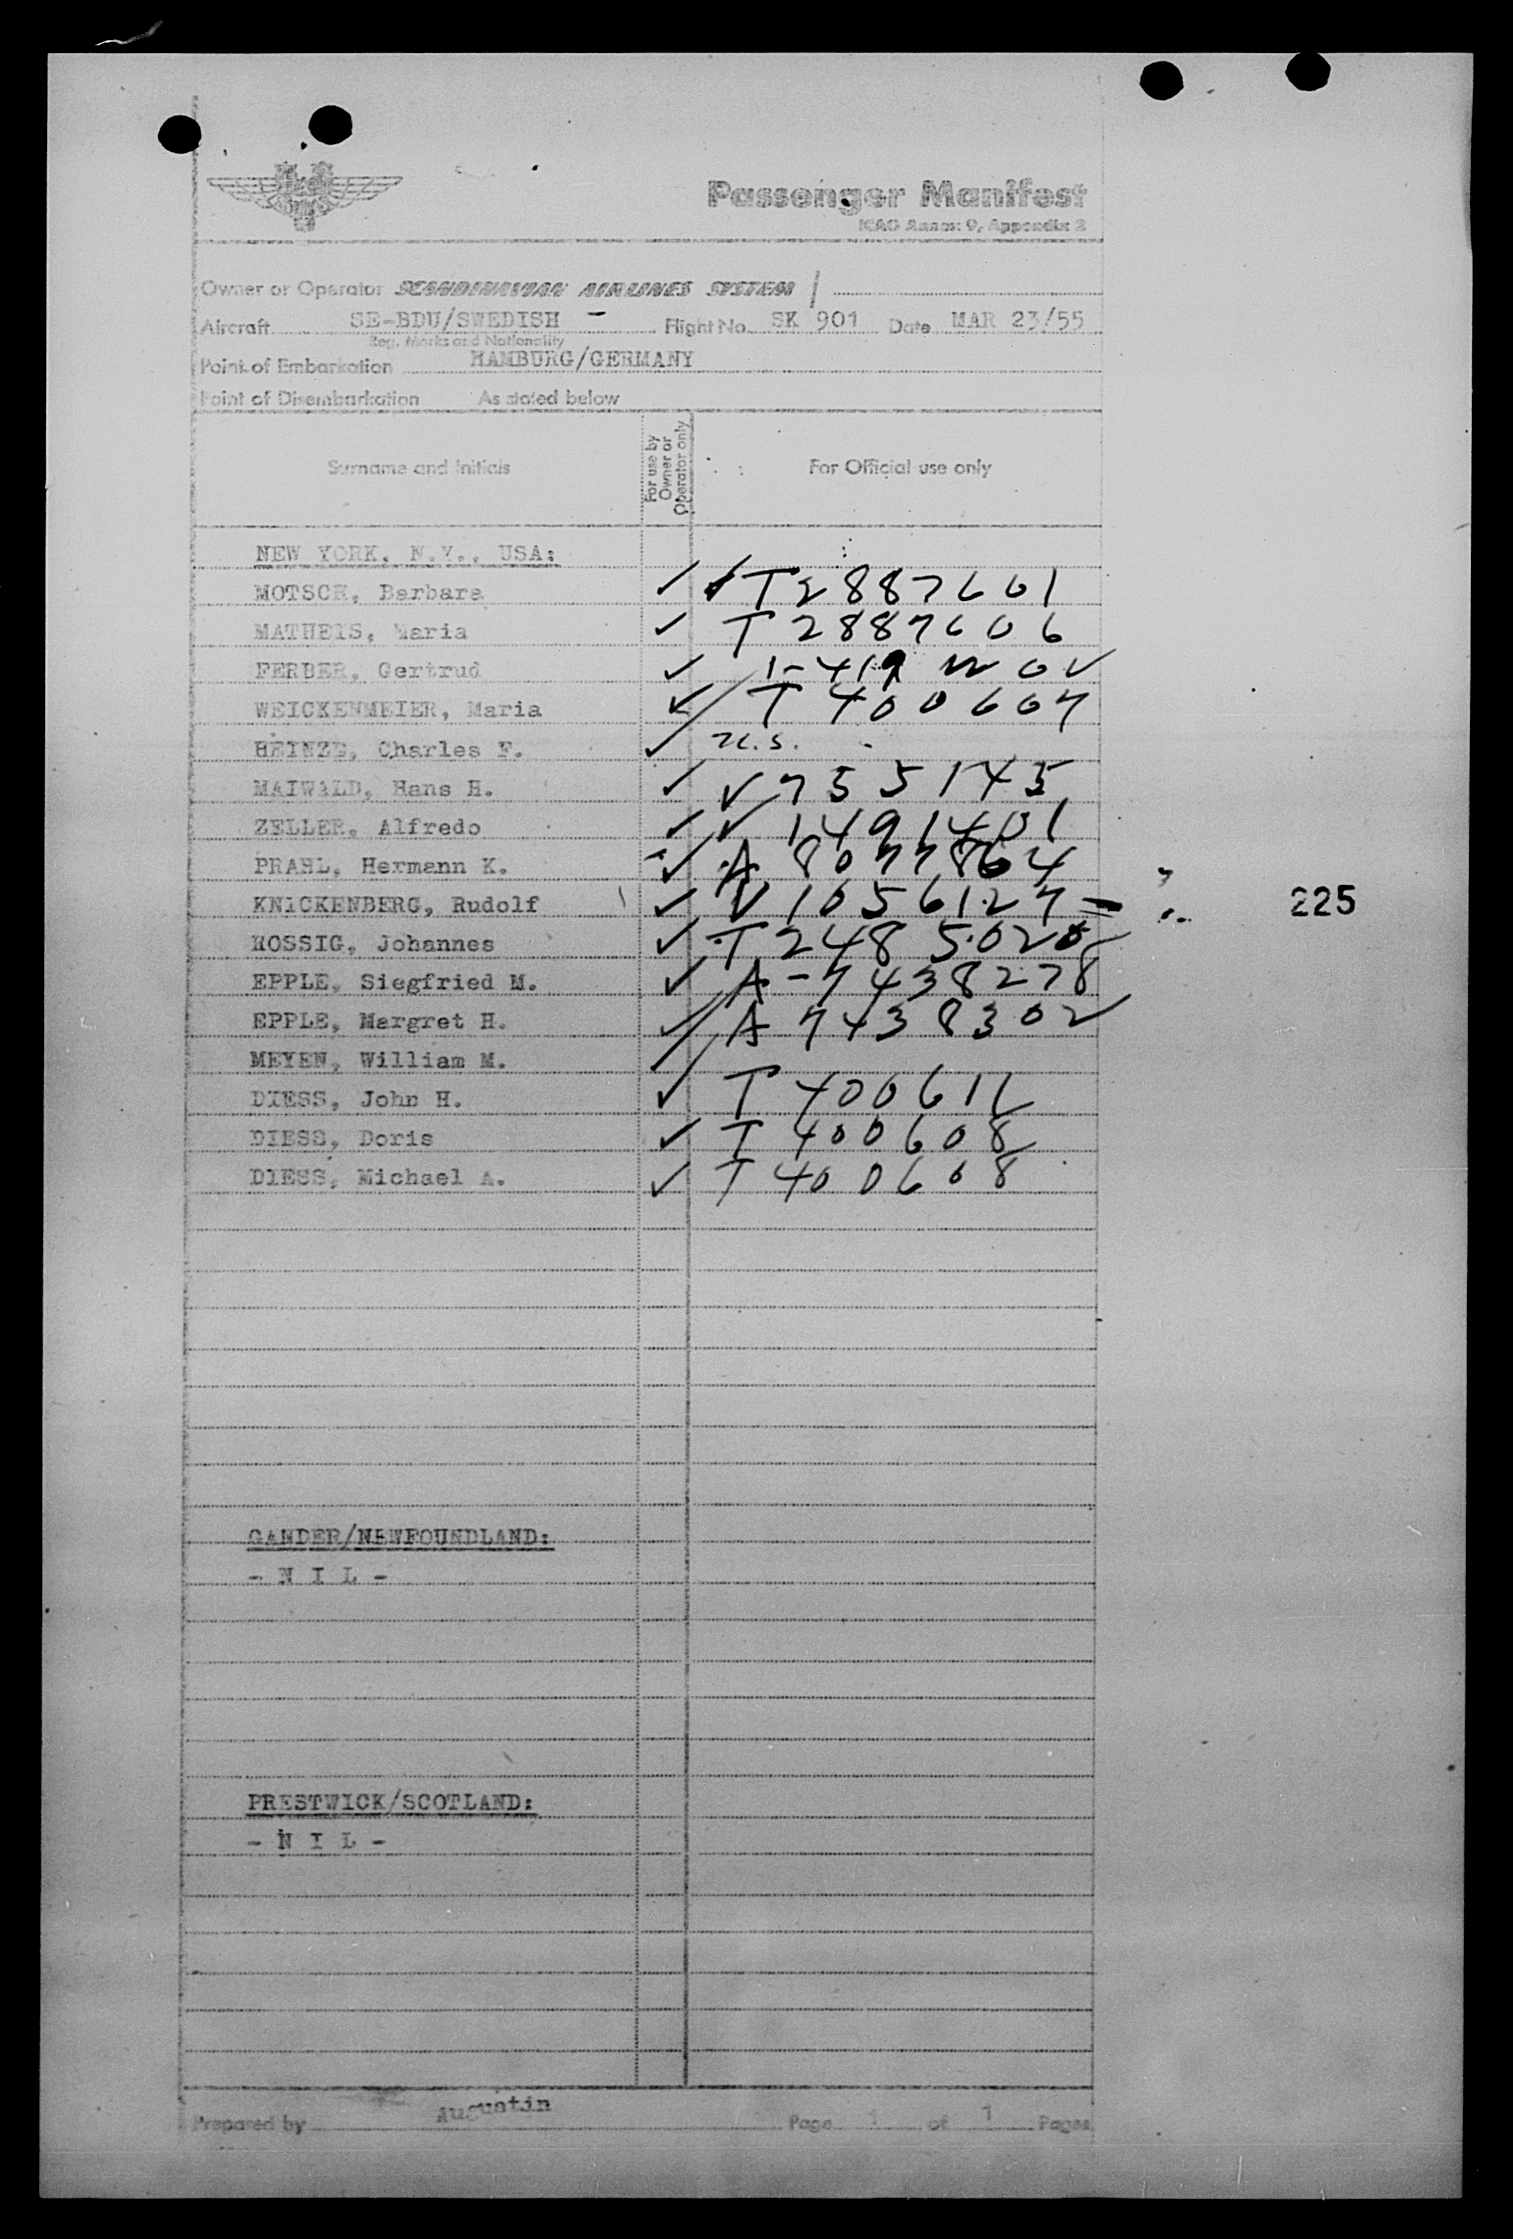 Passenger Manifest
ICAO Annex 9, Appendix 2
Owner or Operator SCANDINAVIAN AIRLINES SYSTEM
Aircraft SE-BDU/SWEDISH - Flight No. SK 901 Date MAR 23/55
Reg. Marks and Nationality
Point of Embarkation HAMBURG/GERMANY
Point of Disembarkation As stated below
Surname and Initials For use by Owner or Operator only For Official use only
NEW YORK, N.Y., USA:
MOTSCH, Barbara ✓ ✓ T2887601
MATHEIS, Maria ✓ T2887606
FERBER, Gertrud ✓
WEICKENMEIER, Maria ✓ T 400607
HEINZE, Charles F. ✓ U.S.
MAIWALD, Hans H. ✓ V755145
ZELLER, Alfredo ✓ V 1491401
PRAHL, Hermann K. ✓ A 8077864
KNICKENBERG, Rudolf ✓ V 1056127 225
HOSSIG, Johannes ✓ T2485020
EPPLE, Siegfried M. ✓ A-7438278
EPPLE, Margret H. ✓ A 7438302
MEYEN, William M. ✓
DIESS, John H. ✓ T 400611
DIESS, Doris ✓ T 400608
DIESS, Michael A. ✓ T 400608
GANDER/NEWFOUNDLAND:
- N I L -
PRESTWICK/SCOTLAND:
- N I L -
Prepared by Augustin Page 1 of 1 Pages